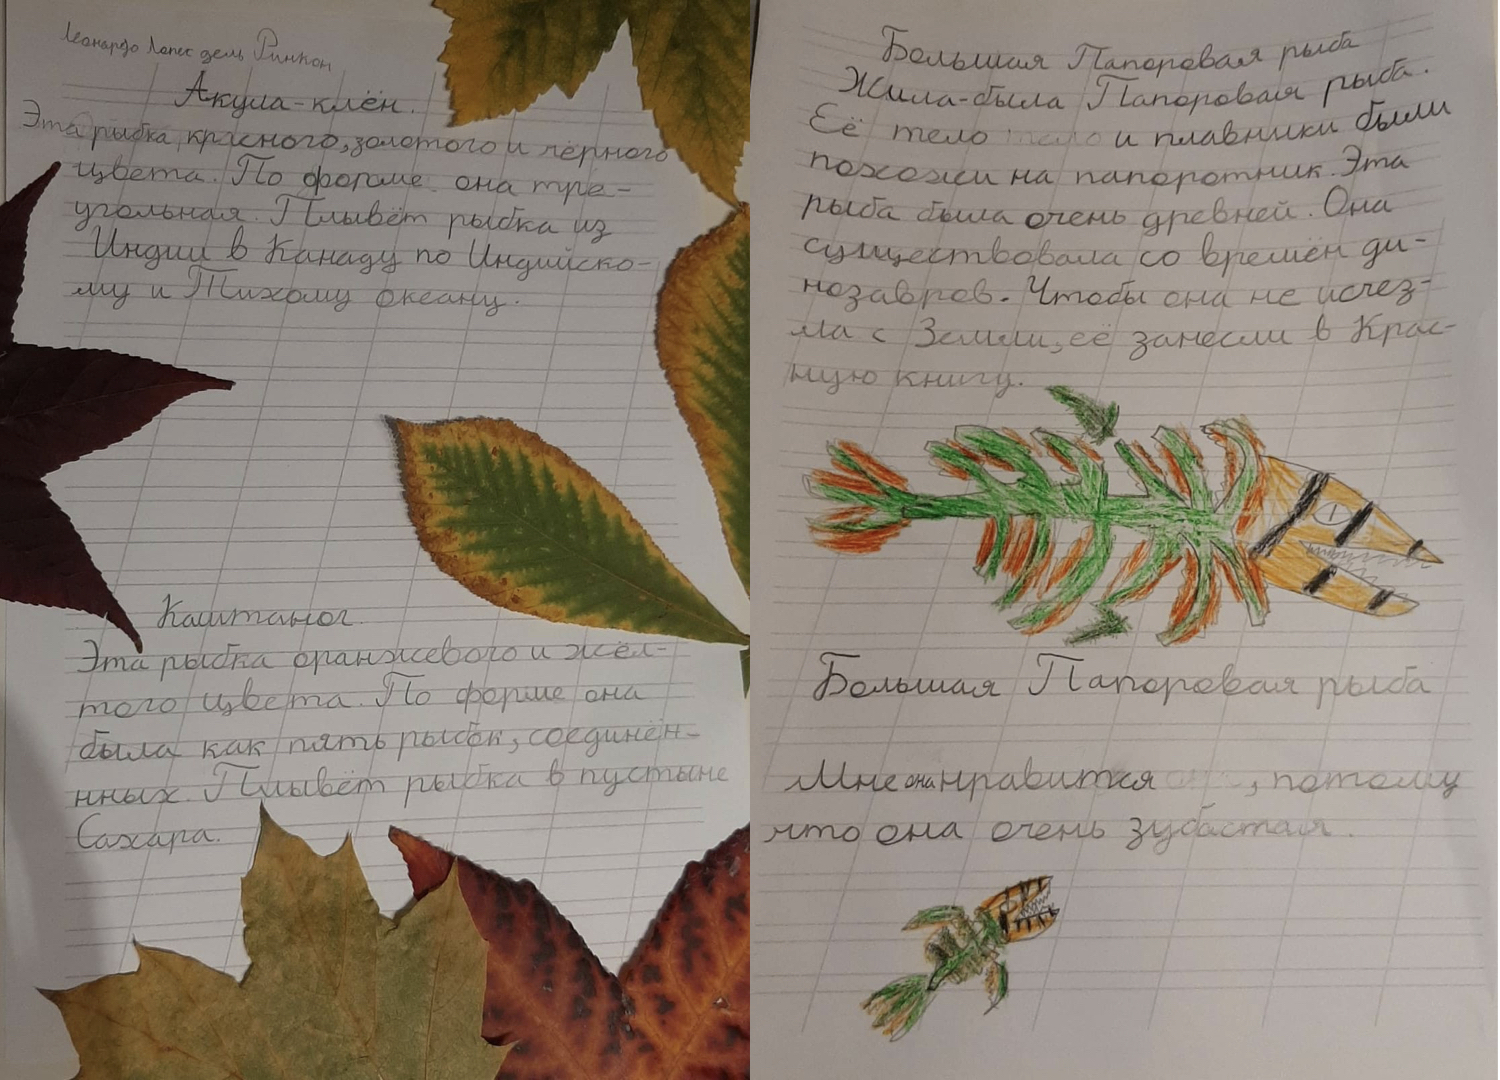 Леонардо Лопес дель Ринкон
Акула-клён.
Эта рыбка красного, золотого и чёрного
цвета. По форме она тре-
угольная. Плывёт рыбка из
Индии в Канаду по Индийско-
му и Тихому океану.
Каштаног.
Эта рыбка оранжевого и жёл-
того цвета. По форме она
была как пять рыбок, соединён-
нных. Плывёт рыбка в пустыне
Сахара.
Большая Папоровая рыба
Жила-была Папоровая рыба.
Её тело тело и плавники были
похожи на папоротник. Эта
рыба была очень древней. Она
существовала со времён ди-
нозавров. Чтобы она не исчез-
ла с Земли, её занесли в Крас-
ную книгу.
Большая Папоровая рыба
Мне она нравится, потому
что она очень зубастая.